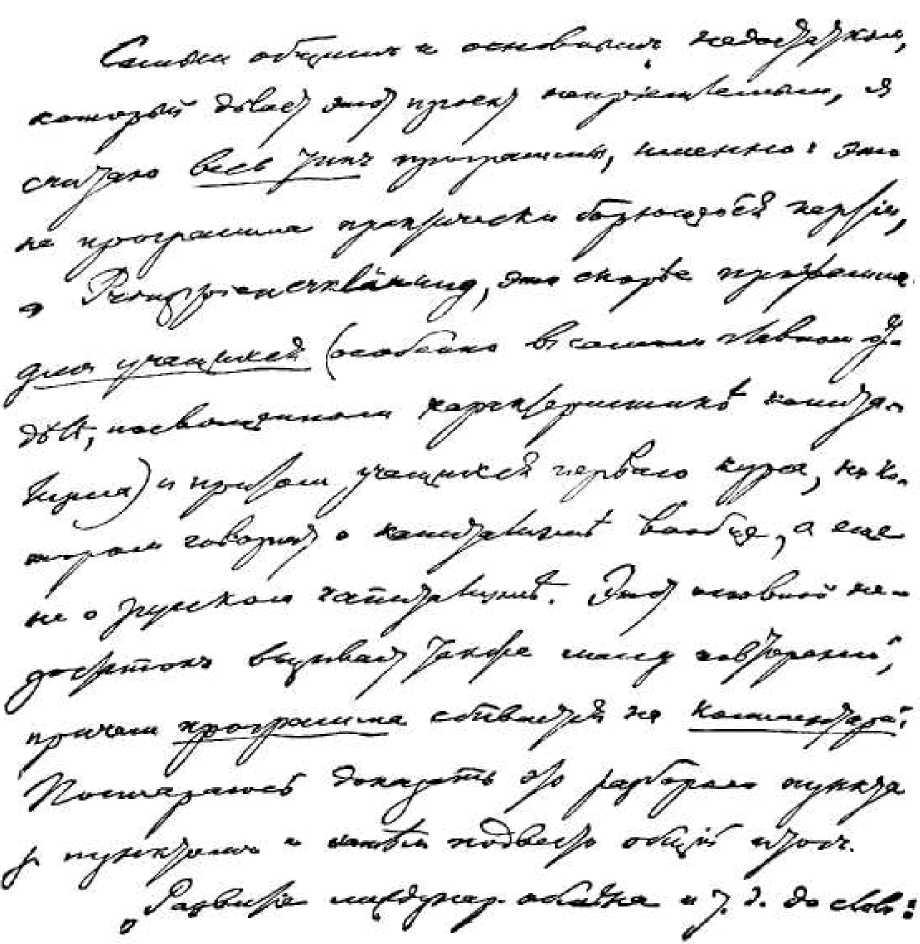 Самым общим и основным недостатком,
который дѣлает этот проект неприемлемым, я
считаю весь тип программы, именно: это
не программа практически борющейся партіи,
а Prinzipienerklärung, это скорѣе программа
для учащихся (особенно в самом главном от-
дѣлѣ, посвященном характеристикѣ капита-
лизма) и притом учащихся первого курса, на ко-
тором говорят о капитализмѣ вообще, а еще
не о русском капитализмѣ. Этот основной не-
достаток вызывает также массу повторений,
причем программа сбивается на комментарій.
Постараюсь доказать это разбором пункта
за пунктом и затѣм подвести общій итог.
„Развитіе междунар. обмѣна" и т. д. до слов: